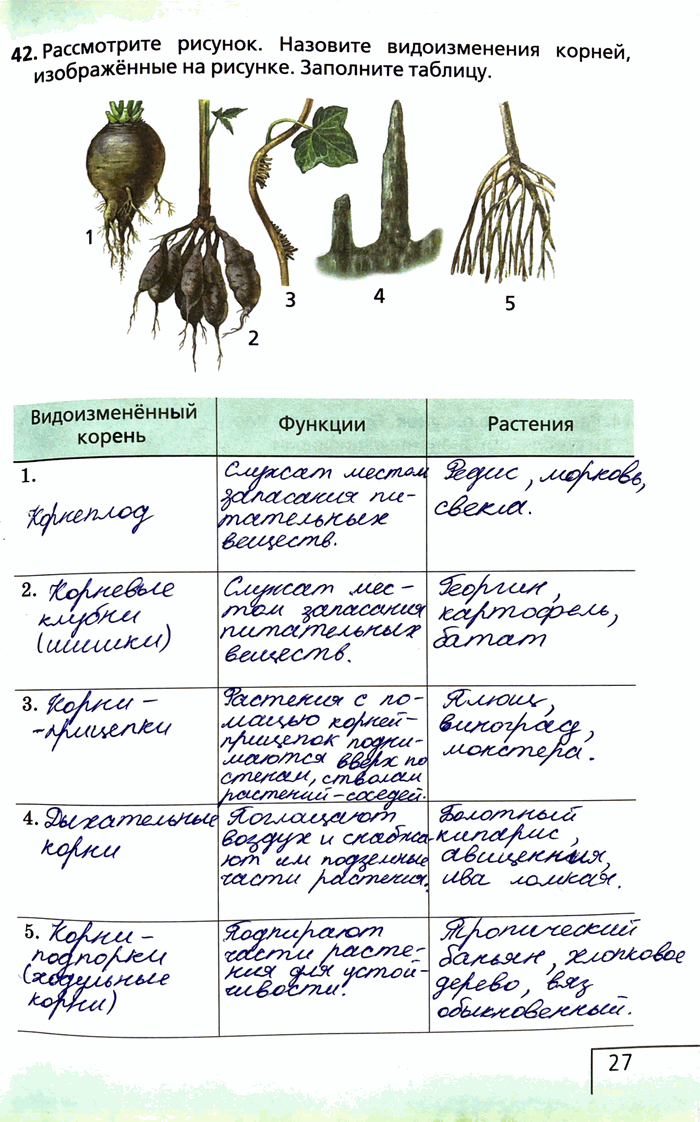 42. Рассмотрите рисунок. Назовите видоизменения корней,
изображённые на рисунке. Заполните таблицу.
1
2
3
4
5
Видоизменённый
корень
Функции
Растения
1.
Корнеплод
Служат местом
запасания пи-
тательных
веществ.
Редис, морковь,
свекла.
2. Корневые
клубни
(шишки)
Служат мес-
том запасания
питательных
веществ.
Георгин,
картофель,
батат
3. Корни-
-прицепки
Растения с по-
мощью корней-
прицепок подни-
маются вверх по
стенам, стволам
растений-соседей.
Плющ,
виноград,
монстера.
4. Дыхательные
корни
Поглощают
воздух и снабжа-
ют им подземные
части растения.
Болотный
кипарис,
авиценния,
ива ломкая.
5. Корни-
подпорки
(ходульные
корни)
Подпирают
части расте-
ния для устой-
чивости.
Тропический
баньян, хлопковое
дерево, вяз
обыкновенный.
27